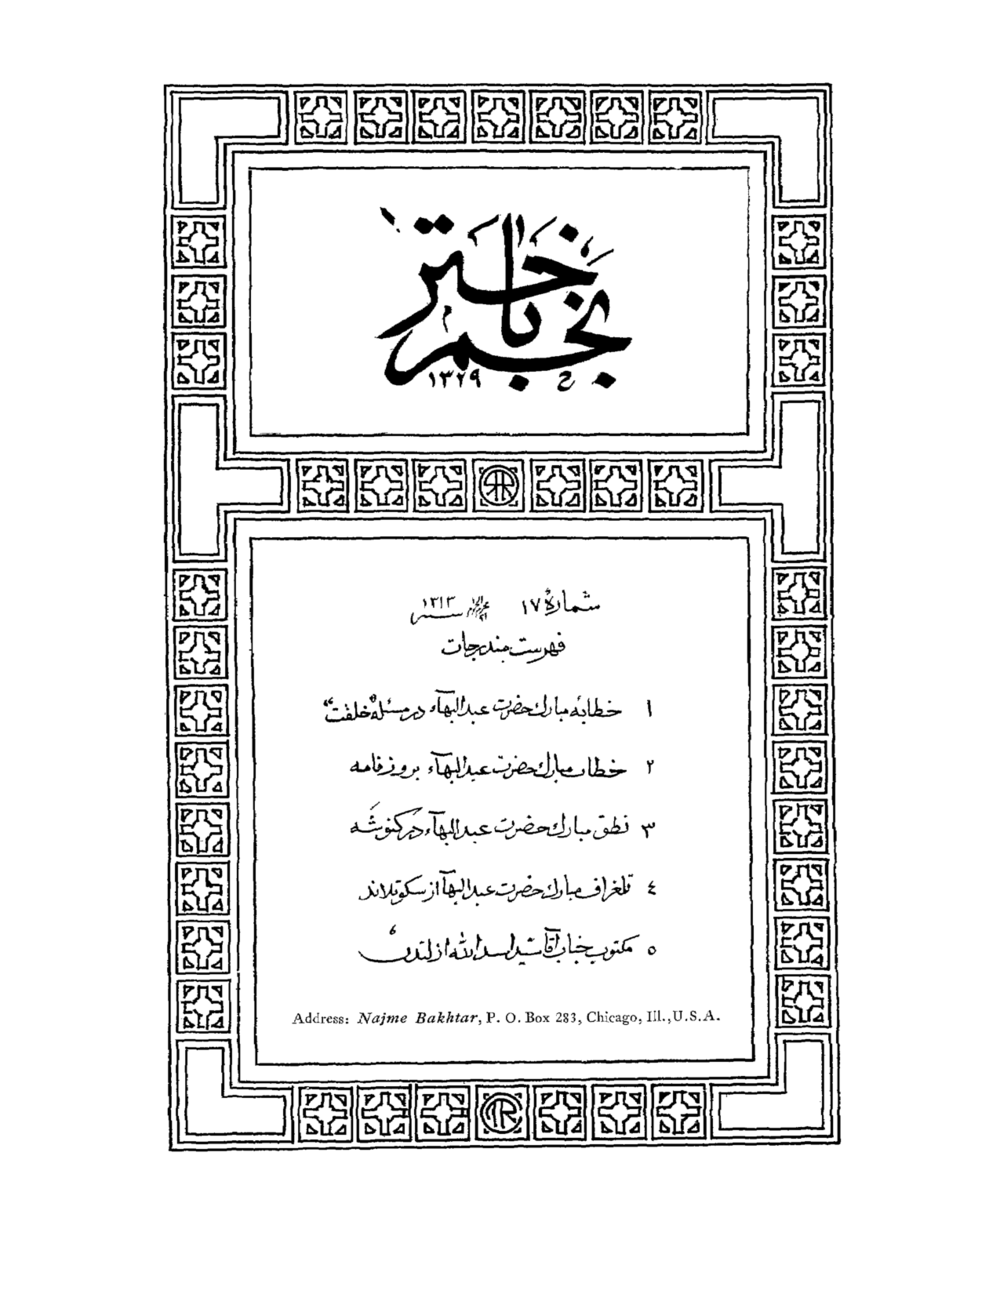 نجم باختر
ح ۱۳۲۹
شمارهٔ ۱۷ محرم الحرام ۲۱ سنه ۱۳۱۳
فهرست مندرجات
۱ خطابهٔ مبارك حضرت عبدالبهآء در مسئلهٔ "خلقت"
۲ خطاب مبارك حضرت عبدالبهآء بروزنامه
۳ نطق مبارك حضرت عبدالبهآء در كنوشَه
٤ تلغراف مبارك حضرت عبدالبهآ از سكوتلاند
٥ مكتوب جناب آقا سيد اسدالله از لندن
Address: Najme Bakhtar, P. O. Box 283, Chicago, Ill., U.S.A.